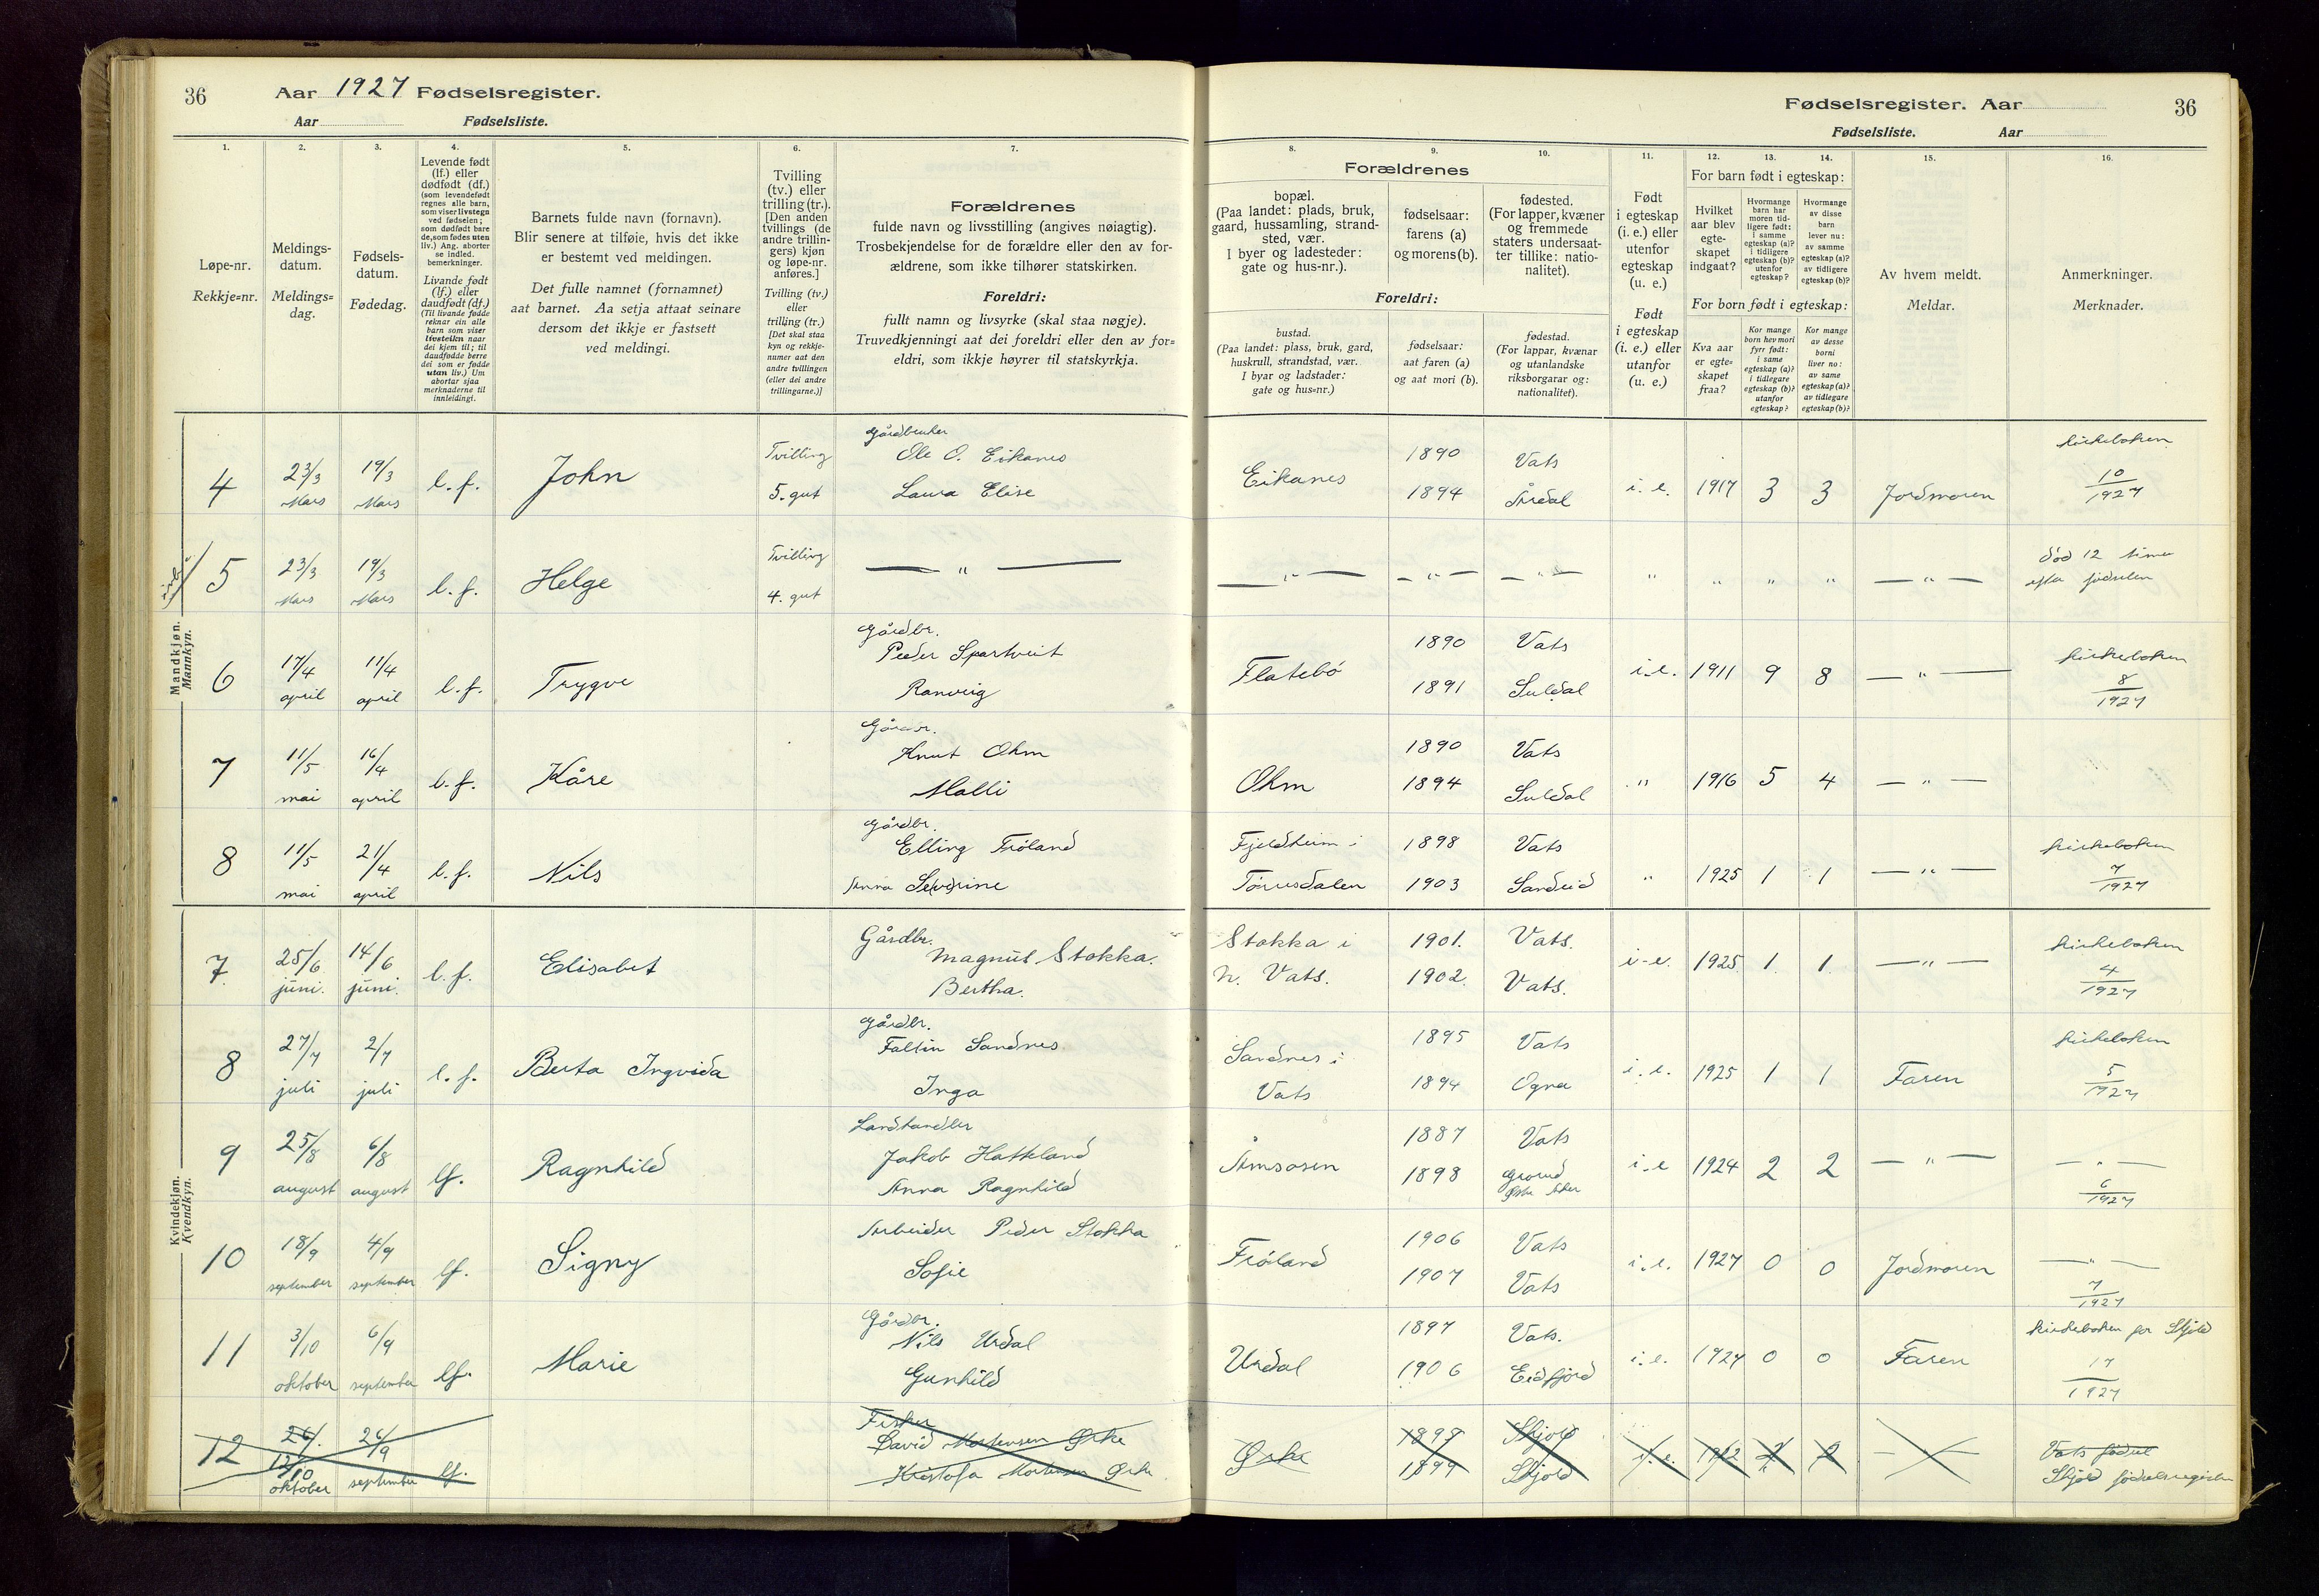 36
Aar 1927 Fødselsregister.
Aar Fødselsliste.
Fødselsregister. Aar
Fødselsliste. Aar
36
1.
Løpe-nr.
Rekkje=nr.
2.
Meldings-
datum.
Meldings=
dag.
3.
Fødsels-
datum.
Fødedag.
4.
Levende født
(lf.) eller
dødfødt (df.)
(som levendefødt
regnes alle barn,
som viser livstegn
ved fødselen;
som dødfødt bare
de, som fødes uten
liv.) Ang. aborter
se indled.
bemerkninger.
Livande født
(lf.) eller
daudfødt (df.)
(Til livande fødde
reknar ein alle
barn som viser
livsteikn naar
dei kjem til; til
daudfødde berre
dei som er fødde
utan liv.) Um
abortar sjaa
merknaderne til
innleidingi.
5.
Barnets fulde navn (fornavn).
Blir senere at tilføie, hvis det ikke
er bestemt ved meldingen.
Det fulle namnet (fornamnet)
aat barnet. Aa setja attaat seinare
dersom det ikkje er fastsett
ved meldingi.
6.
Tvilling
(tv.) eller
trilling (tr.).
[Den anden
tvillings (de
andre trillin-
gers) kjøn
og løpe-nr.
anføres.]
Tvilling (tv.)
eller
trilling (tr.)
[Det skal staa
kyn og rekkje-
numer aat den
andre tvillingen
(eller dei andre
trillingarne.)]
7.
Forældrenes
fulde navn og livsstilling (angives nøiagtig).
Trosbekjendelse for de forældre eller den av for-
ældrene, som ikke tilhører statskirken.
Foreldri:
fullt namn og livsyrke (skal staa nøgje).
Truvedkjenningi aat dei foreldri eller den av for=
eldri, som ikkje høyrer til statskyrkja.
8.
Forældrenes
bopæl.
(Paa landet: plads, bruk,
gaard, hussamling, strand-
sted, vær.
I byer og ladesteder:
gate og hus-nr.).
Foreldri:
bustad.
(Paa landet: plass, bruk, gard,
huskrull, strandstad, vær.
I byar og ladstader:
gate og hus=nr.)
9.
fødselsaar:
farens (a)
og morens (b).
fødselsaar:
aat faren (a)
og aat mori (b).
10.
fødested.
(For lapper, kvæner
og fremmede
staters undersaat-
ter tillike: natio-
nalitet).
fødestad.
(For lappar, kvænar
og utanlandske
riksborgarar og:
nationalitet).
11.
Født
i egteskap
(i. e.) eller
utenfor
egteskap
(u. e.)
Født
i egteskap
(i. e.) eller
utanfor
(u. e.)
12.
For barn født i egteskap:
Hvilket
aar blev
egte-
skapet
indgaat?
For born født i egteskap:
Kva aar
er egte=
skapet
fraa?
13.
Hvormange
barn har
moren tid-
ligere født:
i samme
egteskap (a)?
i tidligere
egteskap (b)?
utenfor
egteskap?
Kor mange
born hev mori
fyrr født:
i same
egteskap (a)?
i tidlegare
egteskap (b)?
utanfor
egteskap?
14.
Hvormange
av disse
barn
lever nu:
av samme
egteskap (a)?
av tidligere
egteskap (b)?
Kor mange
av desse
borni
liver no:
av same
egteskap (a)?
av tidlegare
egteskap (b)?
15.
Av hvem meldt.
Meldar.
16.
Anmerkninger.
Merknader.
Mandkjøn.
Mannkyn.
4 23/3 Mars 19/3 Mars l. f. John Tvilling 5. gut Gårdbruker Ole O. Eikanes Laura Elise Eikanes 1890 1894 Vats Årdal i. e. 1917 3 3 Jordmoren kirkeboken 10/1927
5 23/3 Mars 19/3 Mars l. f. Helge Tvilling 4. gut — " — — " — — " — — " — " " " " — " — død 12 timer efter fødselen
6 17/4 april 11/4 april l. f. Trygve Gårdbr. Peder Spartveit Ranveig Flatebö 1890 1891 Vats Suldal i. e. 1911 9 8 — " — kirkeboken 8/1927
7 11/5 mai 16/4 april l. f. Kåre Gårdbr. Knut Ohm Malli Ohm 1890 1894 Vats Suldal " 1916 5 4 — " —
8 11/5 mai 21/4 april l. f. Nils Gårdbr. Elling Fröland Anna Se(ve)rine Fjeldheim i Törresdalen 1898 1903 Vats Sandeid " 1925 1 1 — " — kirkeboken 7/1927
Kvindekjøn.
Kvendkyn.
7. 25/6 juni. 14/6 juni. l. f. Elisabet Gårdbr. Magnus Stokka. Bertha. Stokka i n. Vats. 1901. 1902. Vats. Vats. i-e. 1925. 1. 1. — " — kirkeboken 4/1927
8 27/7 juli 2/7 juli l. f. Berta Ingvida Gårdbr. Faltin Sandnes Inga Sandnes i Vats 1895 1894 Vats Ogna i. e. 1925 1 1 Faren kirkeboken 5/1927
9 25/8 august 6/8 august lf. Ragnhild Landhandler Jakob Hatteland Anna Ragnhild Åmsosen 1887 1898 Vats Grorud Østre Aker i. e 1924 2 2 — " — — " — 6/1927
10 18/9 september 4/9 september lf. Signy Arbeider Peder Stokka Sofie Fröland 1906 1907 Vats Vats i. e. 1927 0 0 Jordmoren — " — 7/1927
11 3/10 oktober 6/9 september lf. Marie Gårdbr. Nils Urdal Gunhild Urdal 1897 1906 Vats. Eidfjord i. e. 1927 0 0 Faren kirkeboken for Skjold 17/1927
12 26/. 12/10 oktober 26/9 september lf. Fisker David Mortensen Ørke Kristofa Mortensen Ørke. Ørke 1898 1899 Skjold Skjold i. e. 1922 2 2 — Vats fødsel Skjold fødselsregister